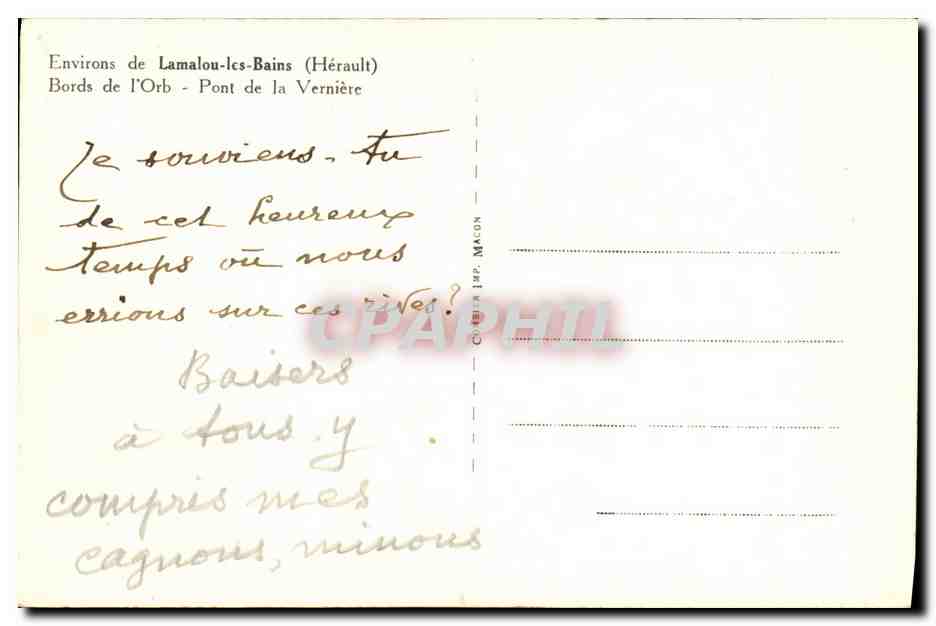 Environs de Lamalou-les-Bains (Hérault)
Bords de l'Orb - Pont de la Vernière
Je souviens-tu
de cet heureux
temps où nous
errions sur ces rives?
Baisers
à tous. y
compris mes
cagnons, minous
COMBIER IMP. MACON
CPAPHIL